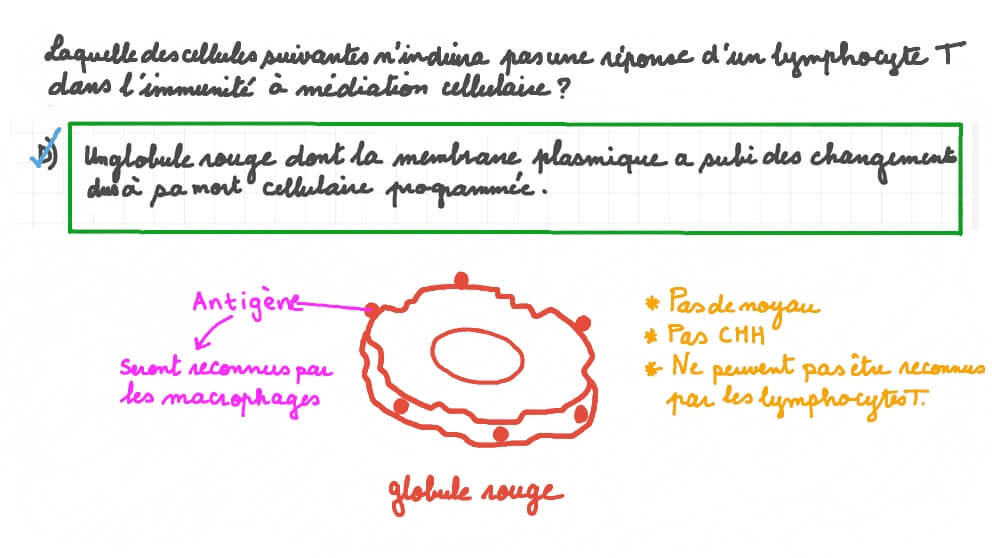 Laquelle des cellules suivantes n'induira pas une réponse d'un lymphocyte T
dans l'immunité à médiation cellulaire ?
Un globule rouge dont la membrane plasmique a subi des changement
dus à sa mort cellulaire programmée.
Antigène
* Pas de noyau
* Pas CMH
Seront reconnus par
les macrophages
* Ne peuvent pas être reconnus
par les lymphocytes T.
globule rouge